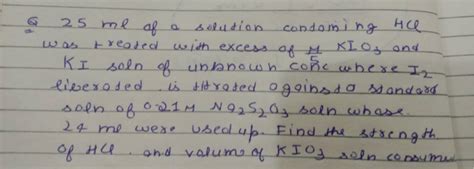 Q 25 ml of a solution containing HCl
was treated with excess of M/5 KIO3 and
KI soln of unknown conc where I2
liberated is titrated against a standard
soln of 0.021M Na2S2O3 soln whose
24 ml were used up. Find the strength
of HCl and volume of KIO3 soln consume